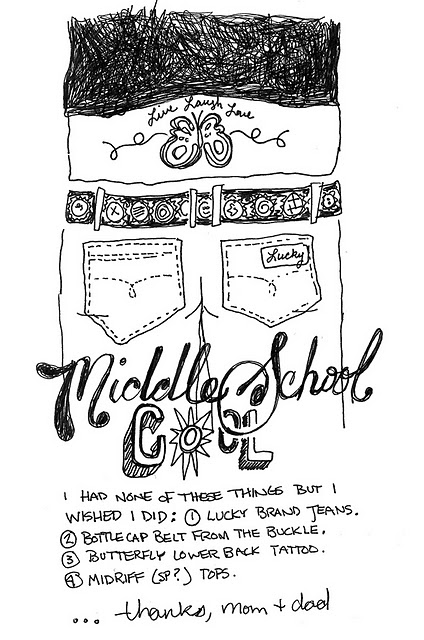 Live Laugh Love
Lucky
Middle School
COOL
I HAD NONE OF THESE THINGS BUT I
WISHED I DID: ① LUCKY BRAND JEANS.
② BOTTLECAP BELT FROM THE BUCKLE.
③ BUTTERFLY LOWER BACK TATTOO.
④ MIDRIFF (SP?) TOPS.
... thanks, mom + dad